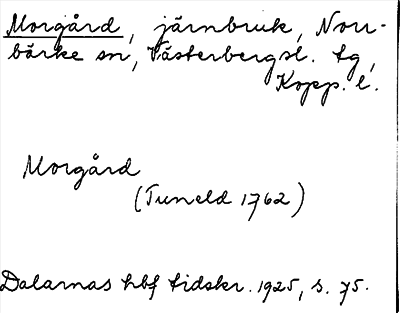 Morgård, järnbruk, Norr-
bärke sn, Västerbergsl. tg,
Kopp. l.
Morgård
(Tuneld 1762)
Dalarnas hbf tidskr. 1925, s. 75.